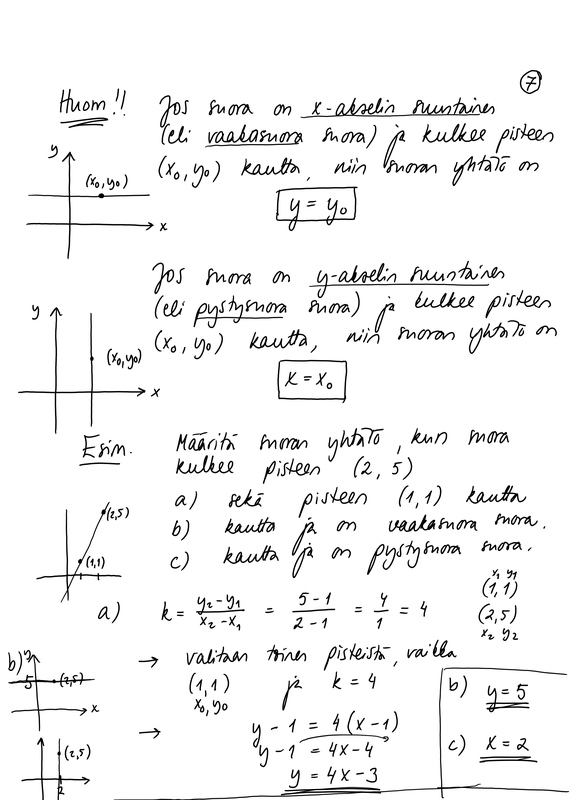 7
Huom!! Jos suora on x-akselin suuntainen
(eli vaakasuora suora) ja kulkee pisteen
(x₀, y₀) kautta, niin suoran yhtälö on
y = y₀
y
(x₀, y₀)
x
Jos suora on y-akselin suuntainen
(eli pystysuora suora) ja kulkee pisteen
(x₀, y₀) kautta, niin suoran yhtälö on
x = x₀
y
(x₀, y₀)
x
Esim. Määritä suoran yhtälö, kun suora
kulkee pisteen (2, 5)
a) sekä pisteen (1,1) kautta
b) kautta ja on vaakasuora suora.
c) kautta ja on pystysuora suora.
(2,5)
(1,1)
x₁ y₁
(1,1)
(2,5)
x₂ y₂
a) k = y₂-y₁/x₂-x₁ = 5-1/2-1 = 4/1 = 4
→ valitaan toinen pisteistä, vaikka
(1,1) ja k = 4
x₀, y₀
→ y - 1 = 4(x-1)
y-1 = 4x-4
y = 4x-3
b) y
5 (2,5)
x
(2,5)
2
b) y = 5
c) x = 2